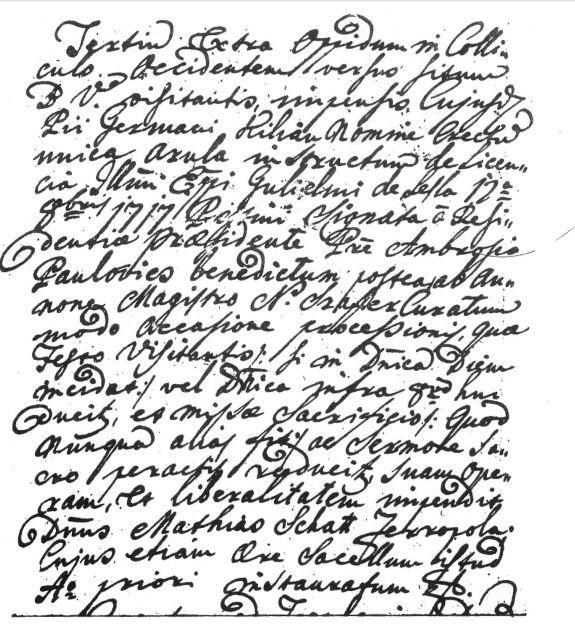 Tertiū Extra Oppidum in Colli-
culo Occidentem versus situm
B. V. visitantis, impensis Cujusd
Pii Germani Kilian Nomine Erectū
unica Arula instructum de licen-
cia Illmi Eppi Gulielmi de 17a
8bris 1717 signata a Resi-
dentiæ Præsidente Pre Ambrosio
Paulovics benedictum, postea ab An-
nonæ Magistro N. Curatum
modo Occasione processionis, quæ
Festo Visitantis /: si in Dnica Diem
incidat :/ vel Dnica infra 8vā huc
Ducit, et missæ Sacrificio /: Quod
Nunquā alias fit :/ ac Sermone Sa-
cro peractis reducit, suam ope-
ram, et liberalitatem impendit
Dnus Mathias Schatt Ferropola
Cujus etiam Ære Sacellum istud
Ao priori instauratum